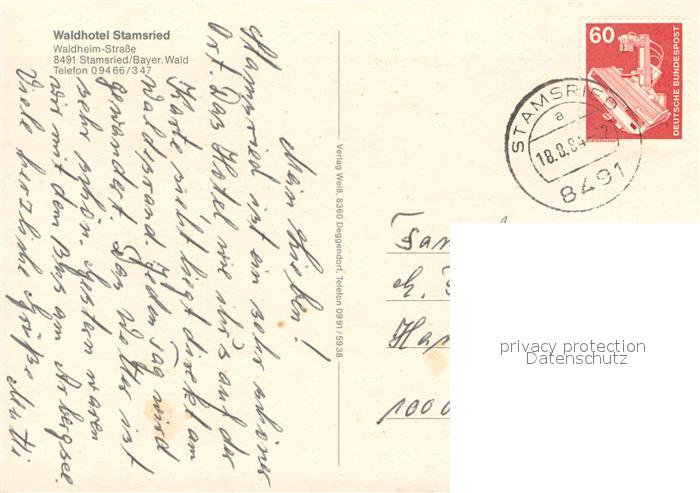 Waldhotel Stamsried
Waldheim-Straße
8491 Stamsried/Bayer. Wald
Telefon 09466/347
Mein Lieben!
Stamsried ist ein sehr schöner
Ort. Das Hotel wie ihr's auf der
Karte sieht liegt direkt am
Waldsrand. Jeden Tag wird
gewandert. Das Wetter ist
sehr schön. Gestern waren
wir mit dem Bus am Arbersee.
Viele herzliche Grüße Mutti
Verlag Weiß, 8360 Deggendorf, Telefon 0991/5938
60
DEUTSCHE BUNDESPOST
STAMSRIED
a
18.8.84
8491
Fam
Han
1000
privacy protection
Datenschutz